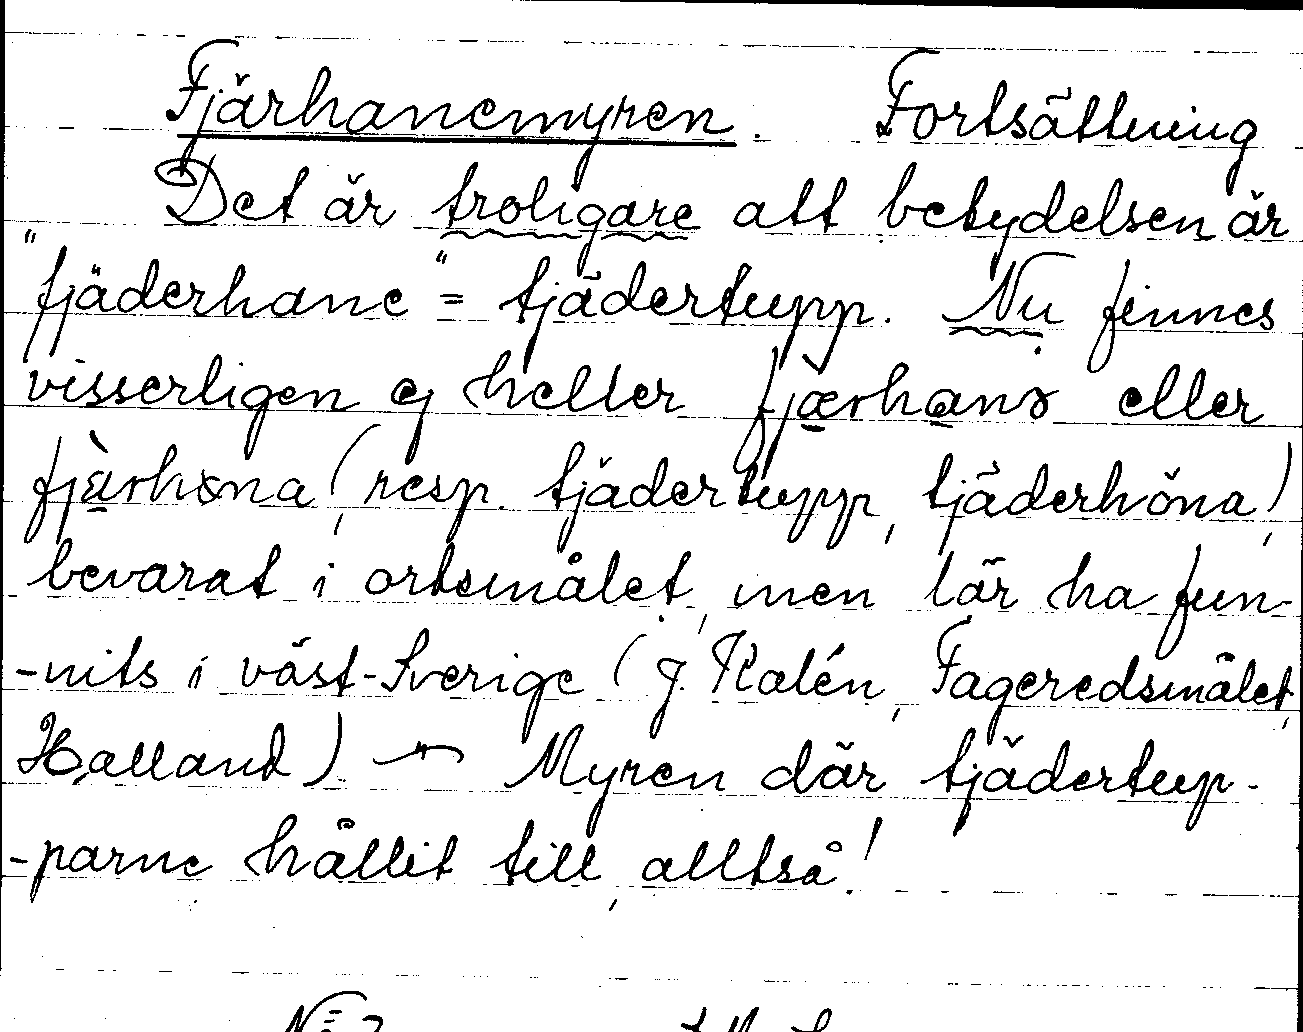 Fjärhanemyren. Fortsättning
Det är troligare att betydelsen är
"fjäderhane" = tjädertupp. Nu finnes
visserligen ej heller fjærhanɘ eller
fjàrhɵna (resp. tjädertupp, tjäderhöna)
bevarat i ortsmålet, men lär ha fun-
-nits i väst-Sverige (J. Kalén, Fageredsmålet,
Halland) — Myren där tjädertup-
-parne hållit till, alltså!